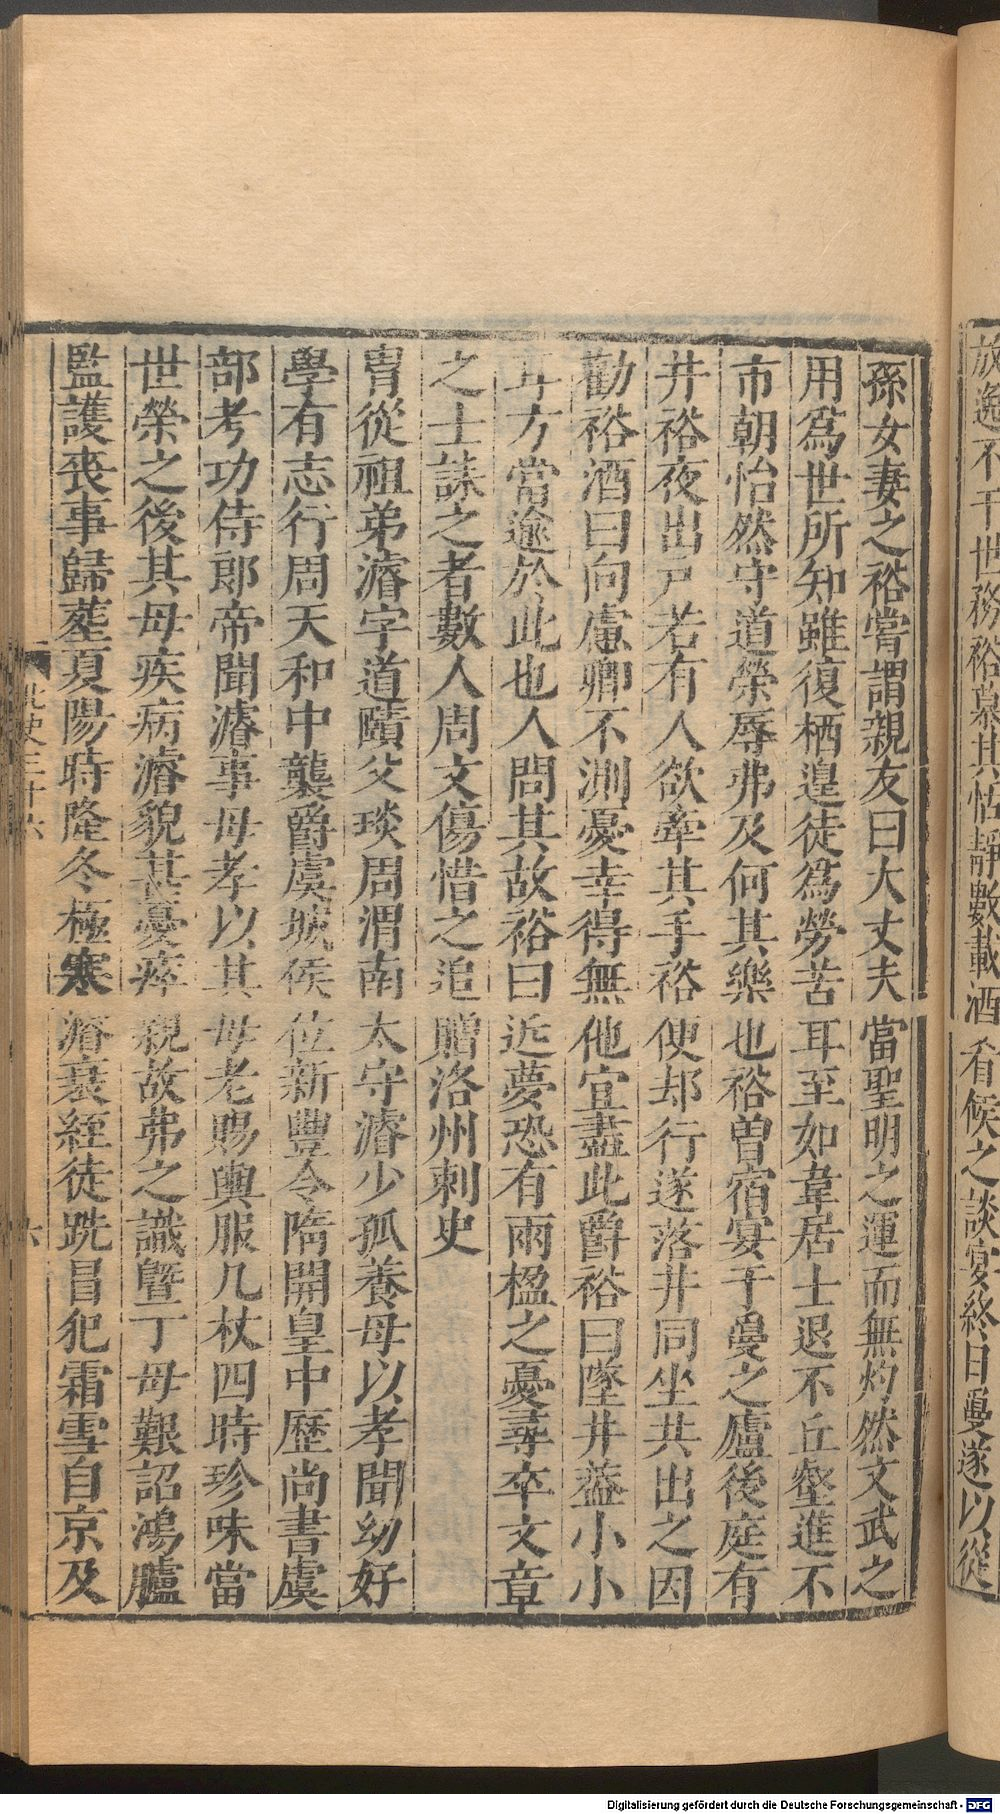 放逸不干世務裕慕其恬靜數載酒肴候之談宴終日敻遂以從
孫女妻之裕嘗謂親友曰大丈夫當聖明之運而無灼然文武之
用爲世所知雖復栖遑徒爲勞苦耳至如韋居士退不丘壑進不
市朝怡然守道榮辱弗及何其樂也裕曾宿宴于敻之廬後庭有
井裕夜出戶若有人欲牽其手裕便却行遂落井同坐共出之因
勸裕酒曰向慮卿不測憂幸得無他宜盡此爵裕曰墜井葢小小
耳方當逾於此也人問其故裕曰近夢恐有兩楹之憂尋卒文章
之士誄之者數人周文傷惜之追贈洛州刺史
胄從祖弟濬字道賾父琰周渭南太守濬少孤養母以孝聞幼好
學有志行周天和中襲爵虞城侯位新豐令隋開皇中歷尚書虞
部考功侍郎帝聞濬事母孝以其母老賜輿服几杖四時珍味當
世榮之後其母疾病濬貌甚憂瘁親故弗之識曁丁母艱詔鴻臚
監護喪事歸葬夏陽時隆冬極寒濬衰絰徒跣冒犯霜雪自京及
北史三十六
六
Digitalisierung gefördert durch die Deutsche Forschungsgemeinschaft - DFG